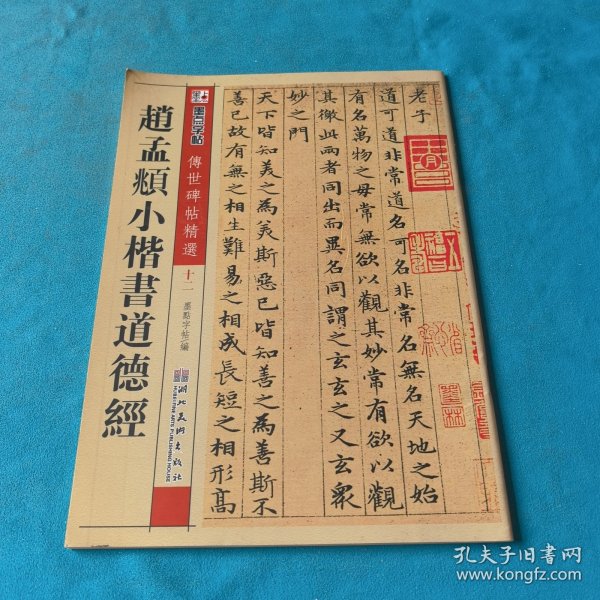 趙孟頫小楷書道德經
墨点字帖
傳世碑帖精選
十二
墨點字帖編
湖北美術出版社
HUBEI FINE ARTS PUBLISHING HOUSE
老子
道可道非常道名可名非常名無名天地之始
有名萬物之母常無欲以觀其妙常有欲以觀
其徼此兩者同出而異名同謂之玄玄之又玄衆
妙之門
天下皆知美之為美斯惡已皆知善之為善斯不
善已故有無之相生難易之相成長短之相形高
孔夫子旧书网
www.kongfz.com